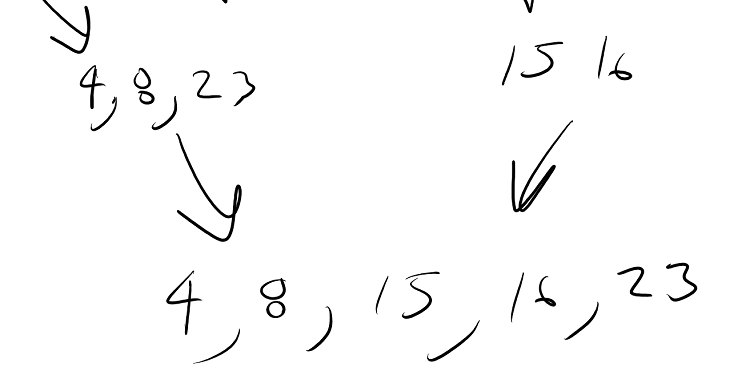 4, 8, 23
15 16
4, 8, 15, 16, 23